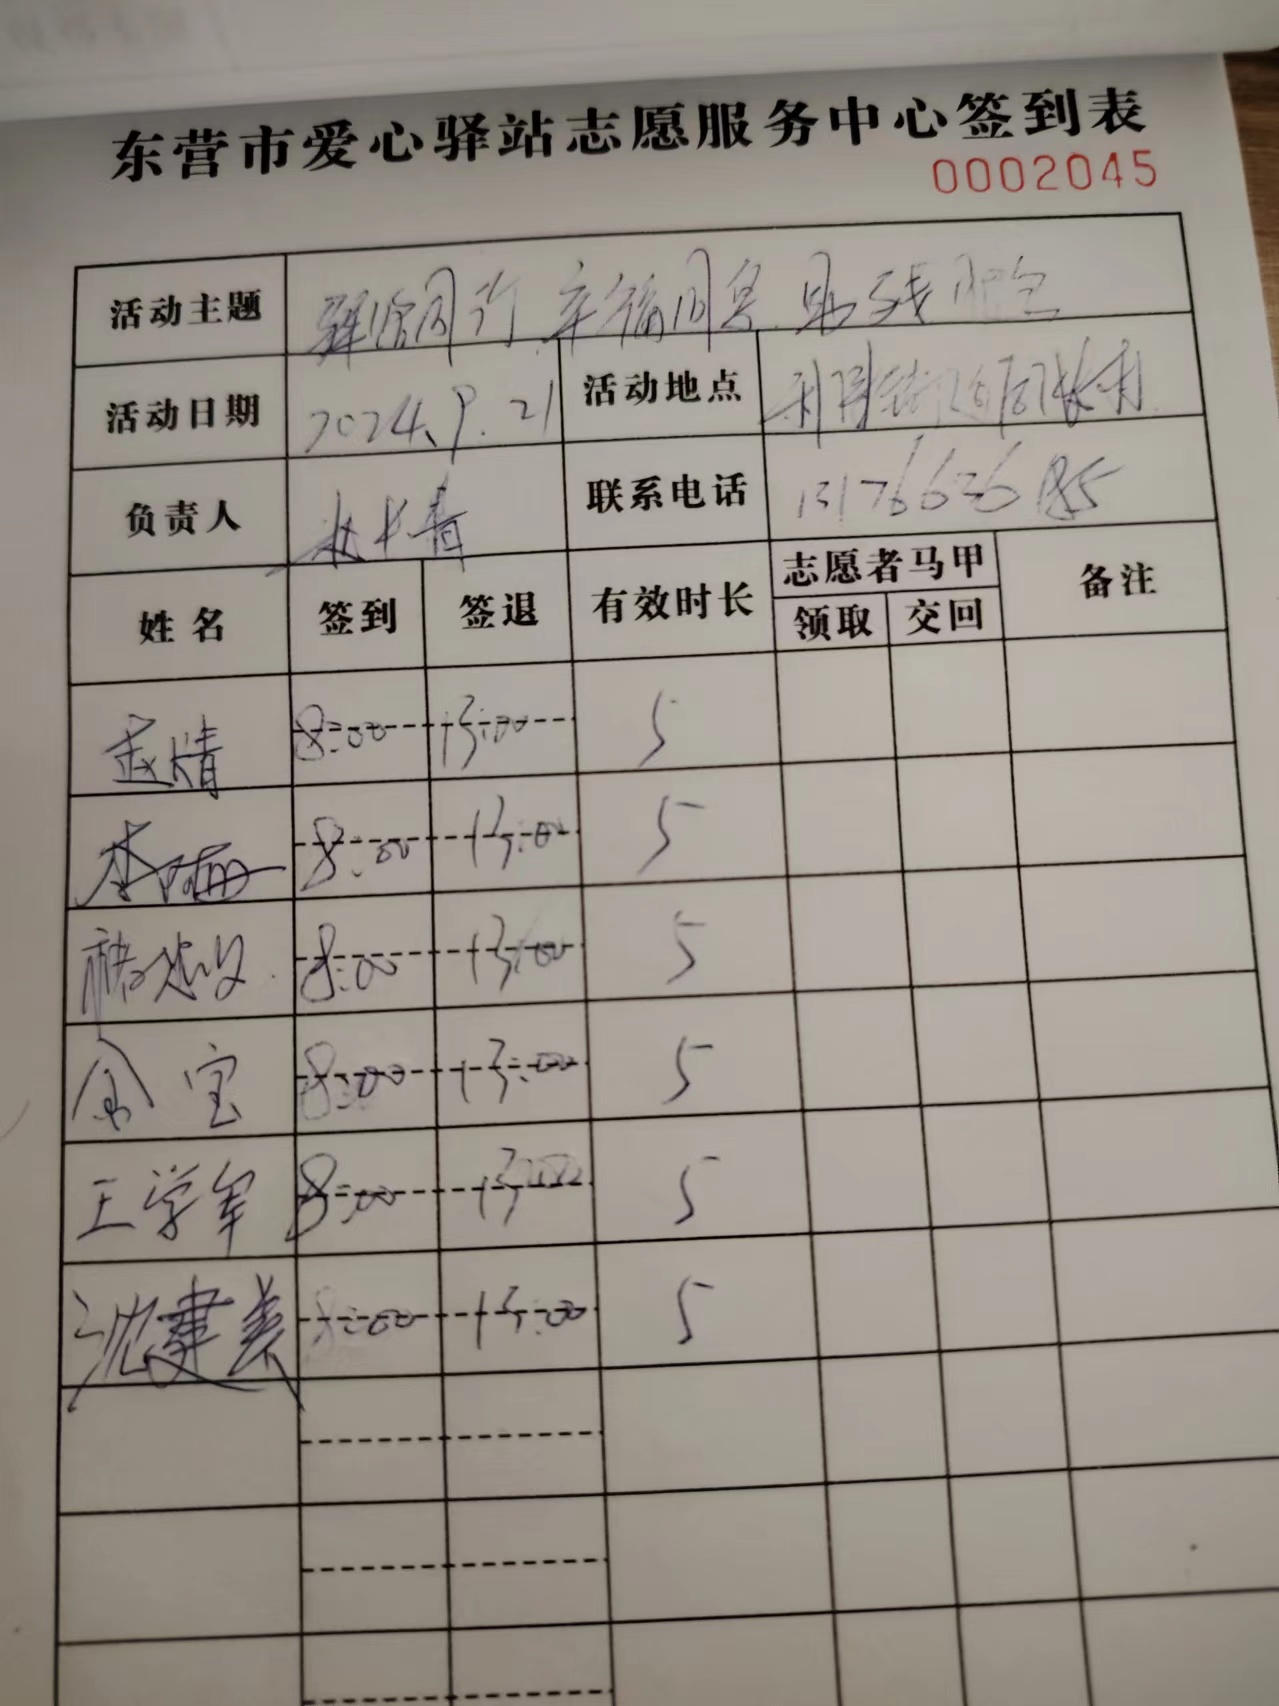 东营市爱心驿站志愿服务中心签到表
0002045
活动主题 同行 幸福同 助残
活动日期 2024.9.21 活动地点 利津街道
负责人 联系电话 13176636185
姓名 签到 签退 有效时长 志愿者马甲 备注
领取 交回
8:00 13:00 5
李 8:00 13:00 5
8:00 13:00 5
金宝 8:00 13:00 5
王学军 8:00 13:00 5
沈建美 8:00 13:00 5